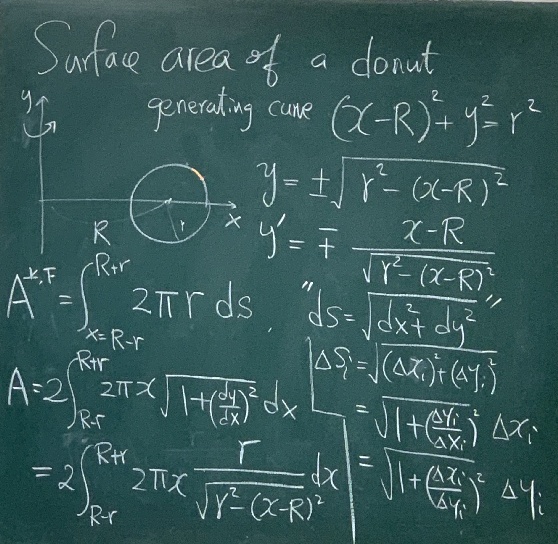 Surface area of a donut
generating curve (x-R)²+y²=r²
y
R
r
x
y=±√(r²-(x-R)²)
y'=∓ (x-R)/√(r²-(x-R)²)
A =∫_{x=R-r}^{R+r} 2πr ds.
"ds=√(dx²+dy²)"
A=2∫_{R-r}^{R+r} 2πx √(1+(dy/dx)²) dx
=2∫_{R-r}^{R+r} 2πx r/√(r²-(x-R)²) dx
ΔSᵢ=√((Δxᵢ)²+(Δyᵢ)²)
=√(1+(Δyᵢ/Δxᵢ)²) Δxᵢ
=√(1+(Δxᵢ/Δyᵢ)²) Δyᵢ